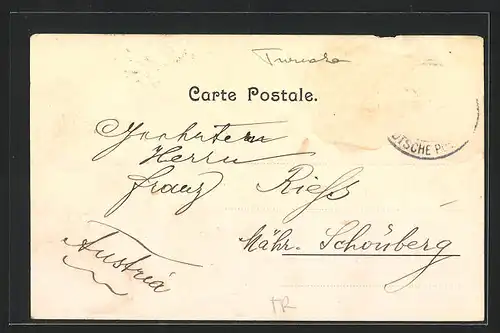 Carte Postale.
UTSCHE PO
Herrn
Franz Riess
Mähr. Schönberg
Austria
TR